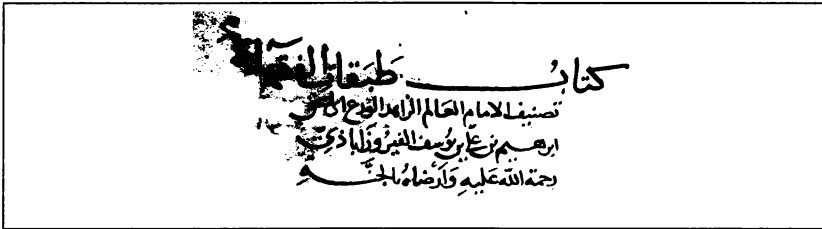 كتاب طبقات الفقهاء
تصنيف الامام العالم الزاهد الورع ابى اسحق
ابرهيم بن علي بن يوسف الفيروزاباذي
رحمة الله عليه وأرضاه بالجنة